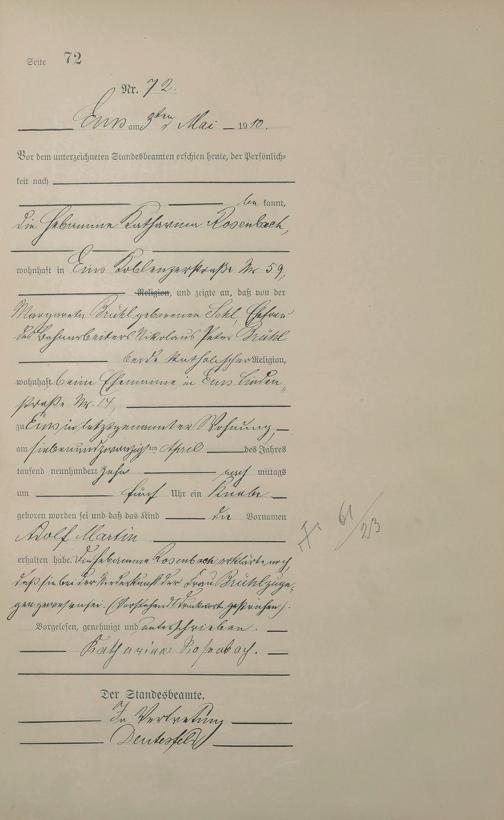 Seite 72
Nr. 72.
Ems am 3ten Mai 1910.
Vor dem unterzeichneten Standesbeamten erschien heute, der Persönlich-
keit nach
bekannt,
die Hebamme Katharina Rosenbach,
wohnhaft in Ems Koblenzerstraße Nr 59,
Religion, und zeigte an, daß von der
Margareta Brühl geborenen Ehefrau
des Bahnarbeiters Nikolaus Peter Brühl
beide katholischer Religion,
wohnhaft beim Ehemanne in Ems Linden-
straße Nr. 14,
zu Ems in letztgenannter Wohnung,
am siebenundzwanzigsten April des Jahres
tausend neunhundert zehn nach mittags
um fünf Uhr ein Knabe
geboren worden sei und daß das Kind die Vornamen
Adolf Martin
erhalten habe. Die Hebamme Rosenbach erklärte noch,
daß sie bei der Niederkunft der Frau Brühl zuge-
gen gewesen sei. (Vorstehend 1 Druckwort gestrichen).
Vorgelesen, genehmigt und unterschrieben.
Katharina Rosenbach.
Der Standesbeamte.
In Vertretung
61/23